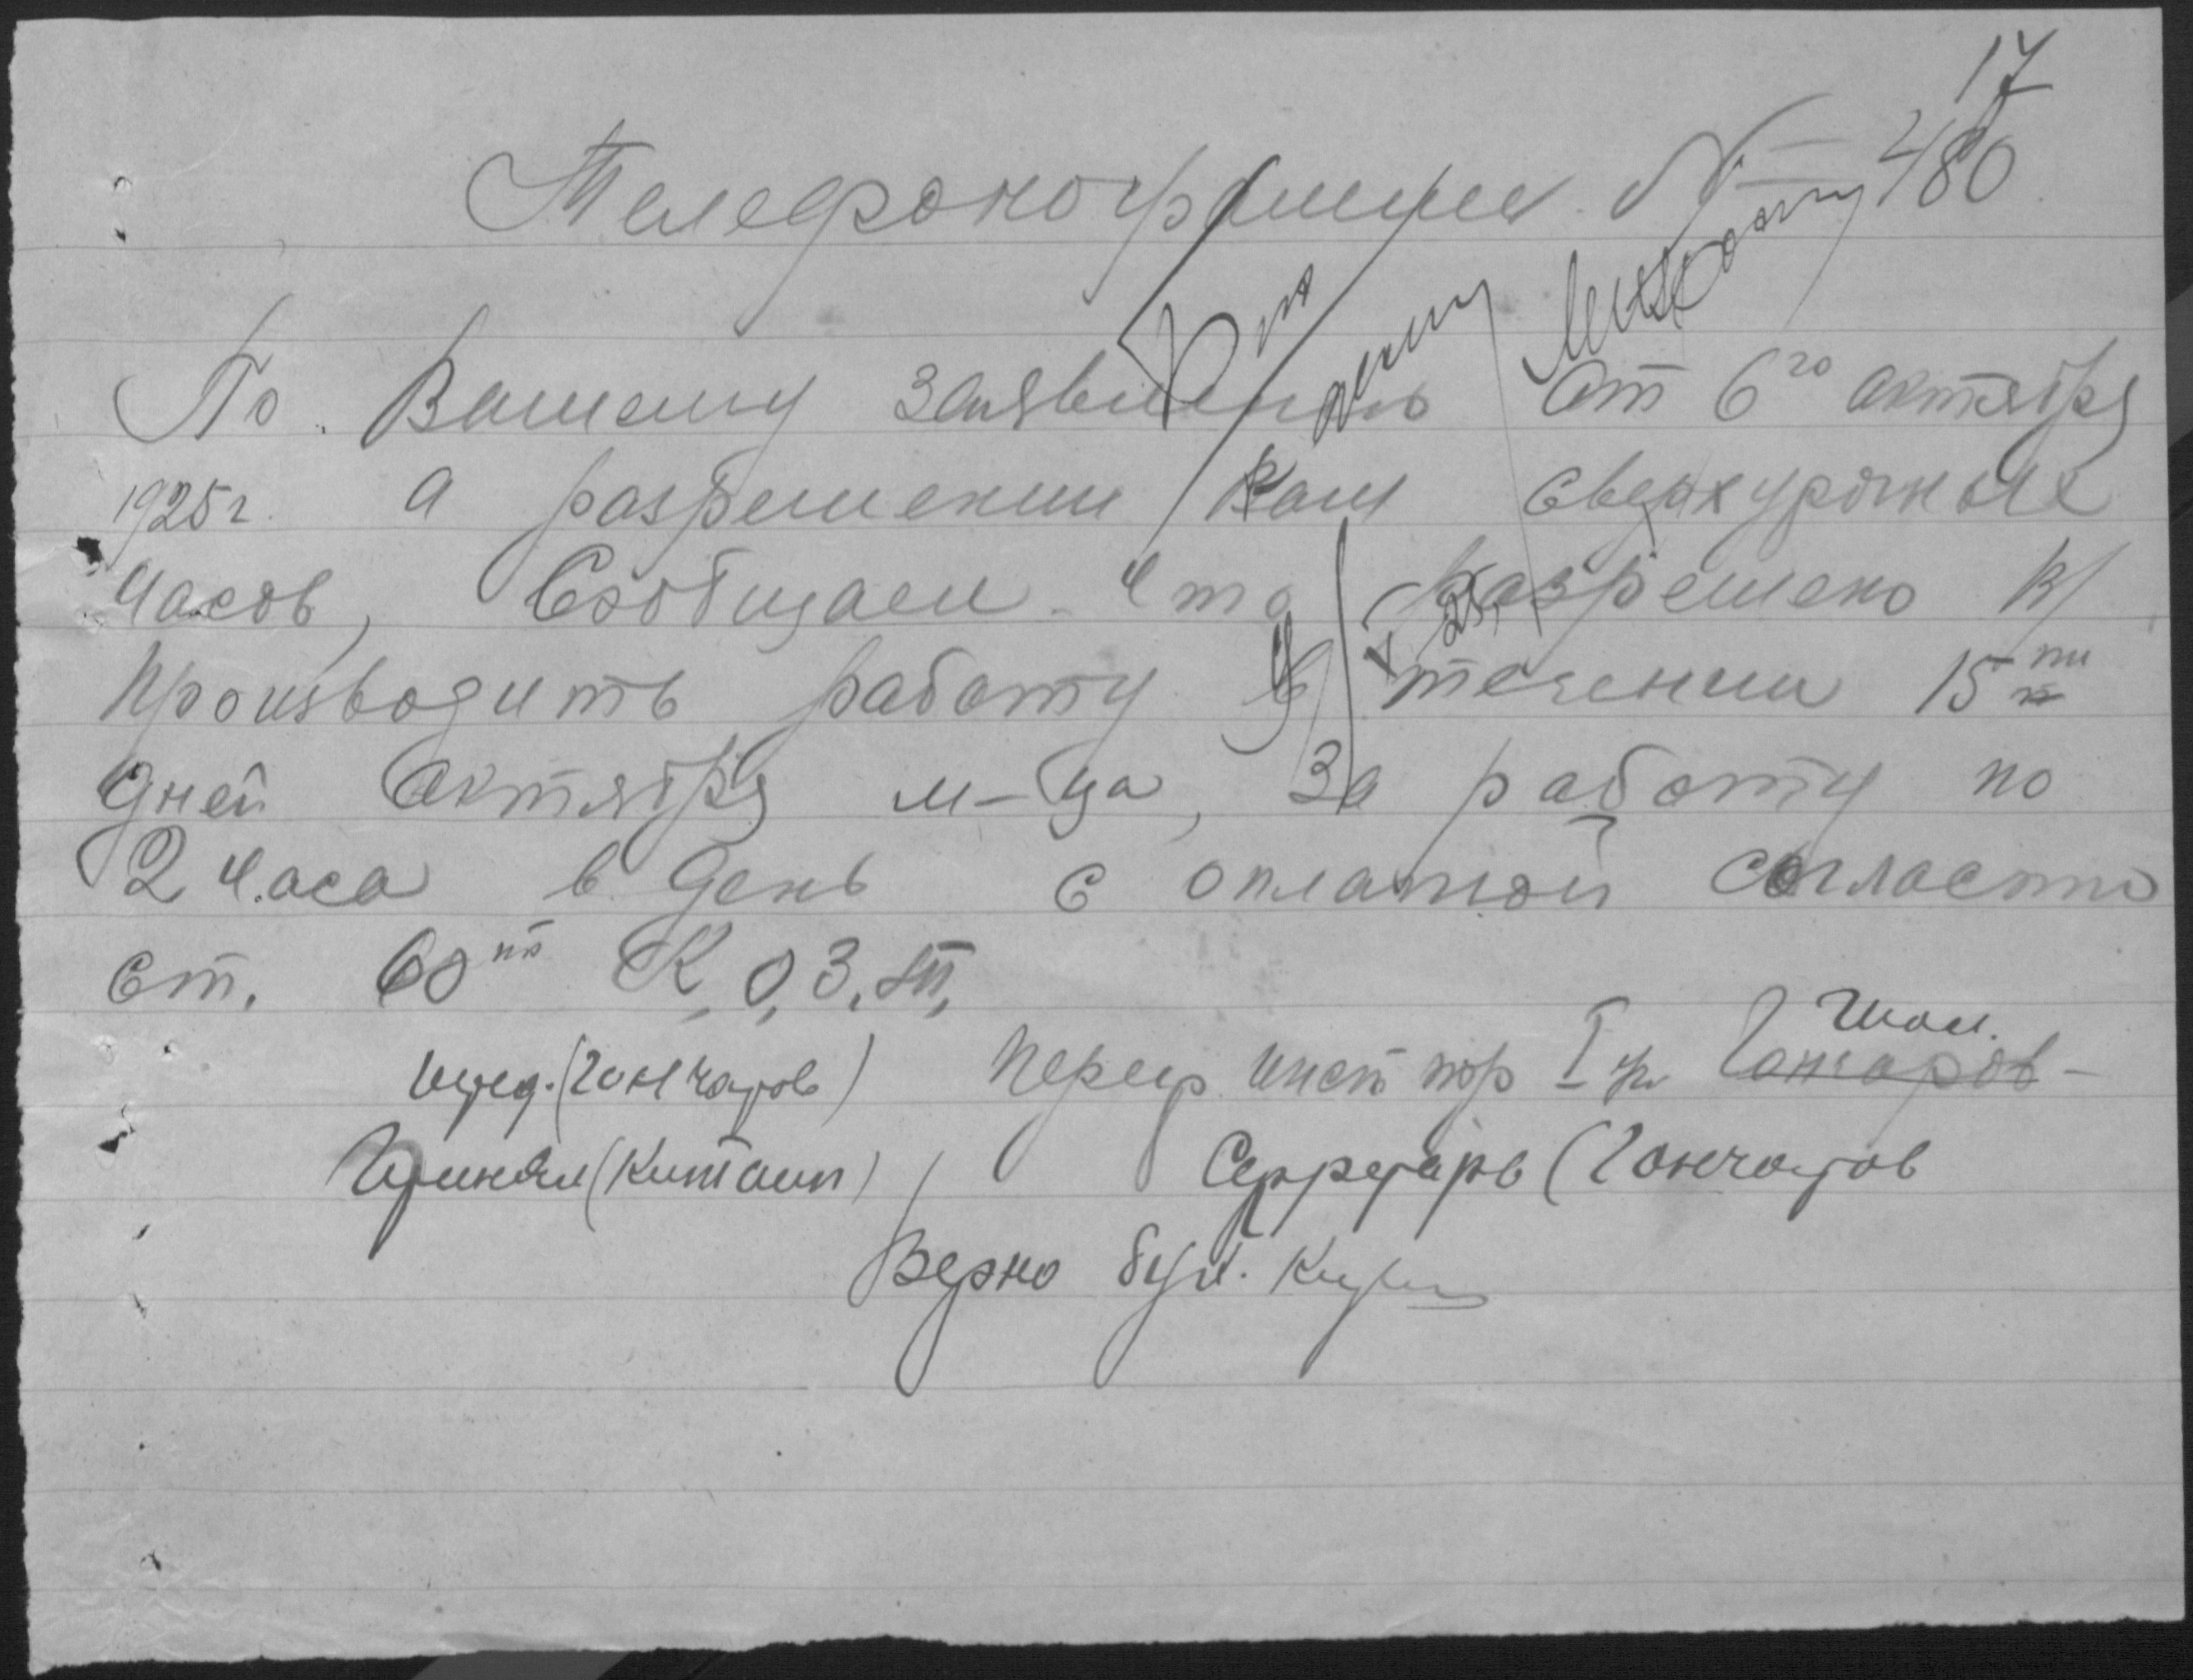 17
Телефонограмма № 480
По Вашему заявлению от 6го октября
1925 г. а разрешении Вам сверхурочных
Часов, Сообщаем что разрешено
производить работу в течении 15 ти
дней Октября м-ца, За работу по
2 Часа в День с оплатой согластно
Ст. 60
Перед. (Гончаров) I Гончаров
Принял Секретарь (Гончаров
Верно